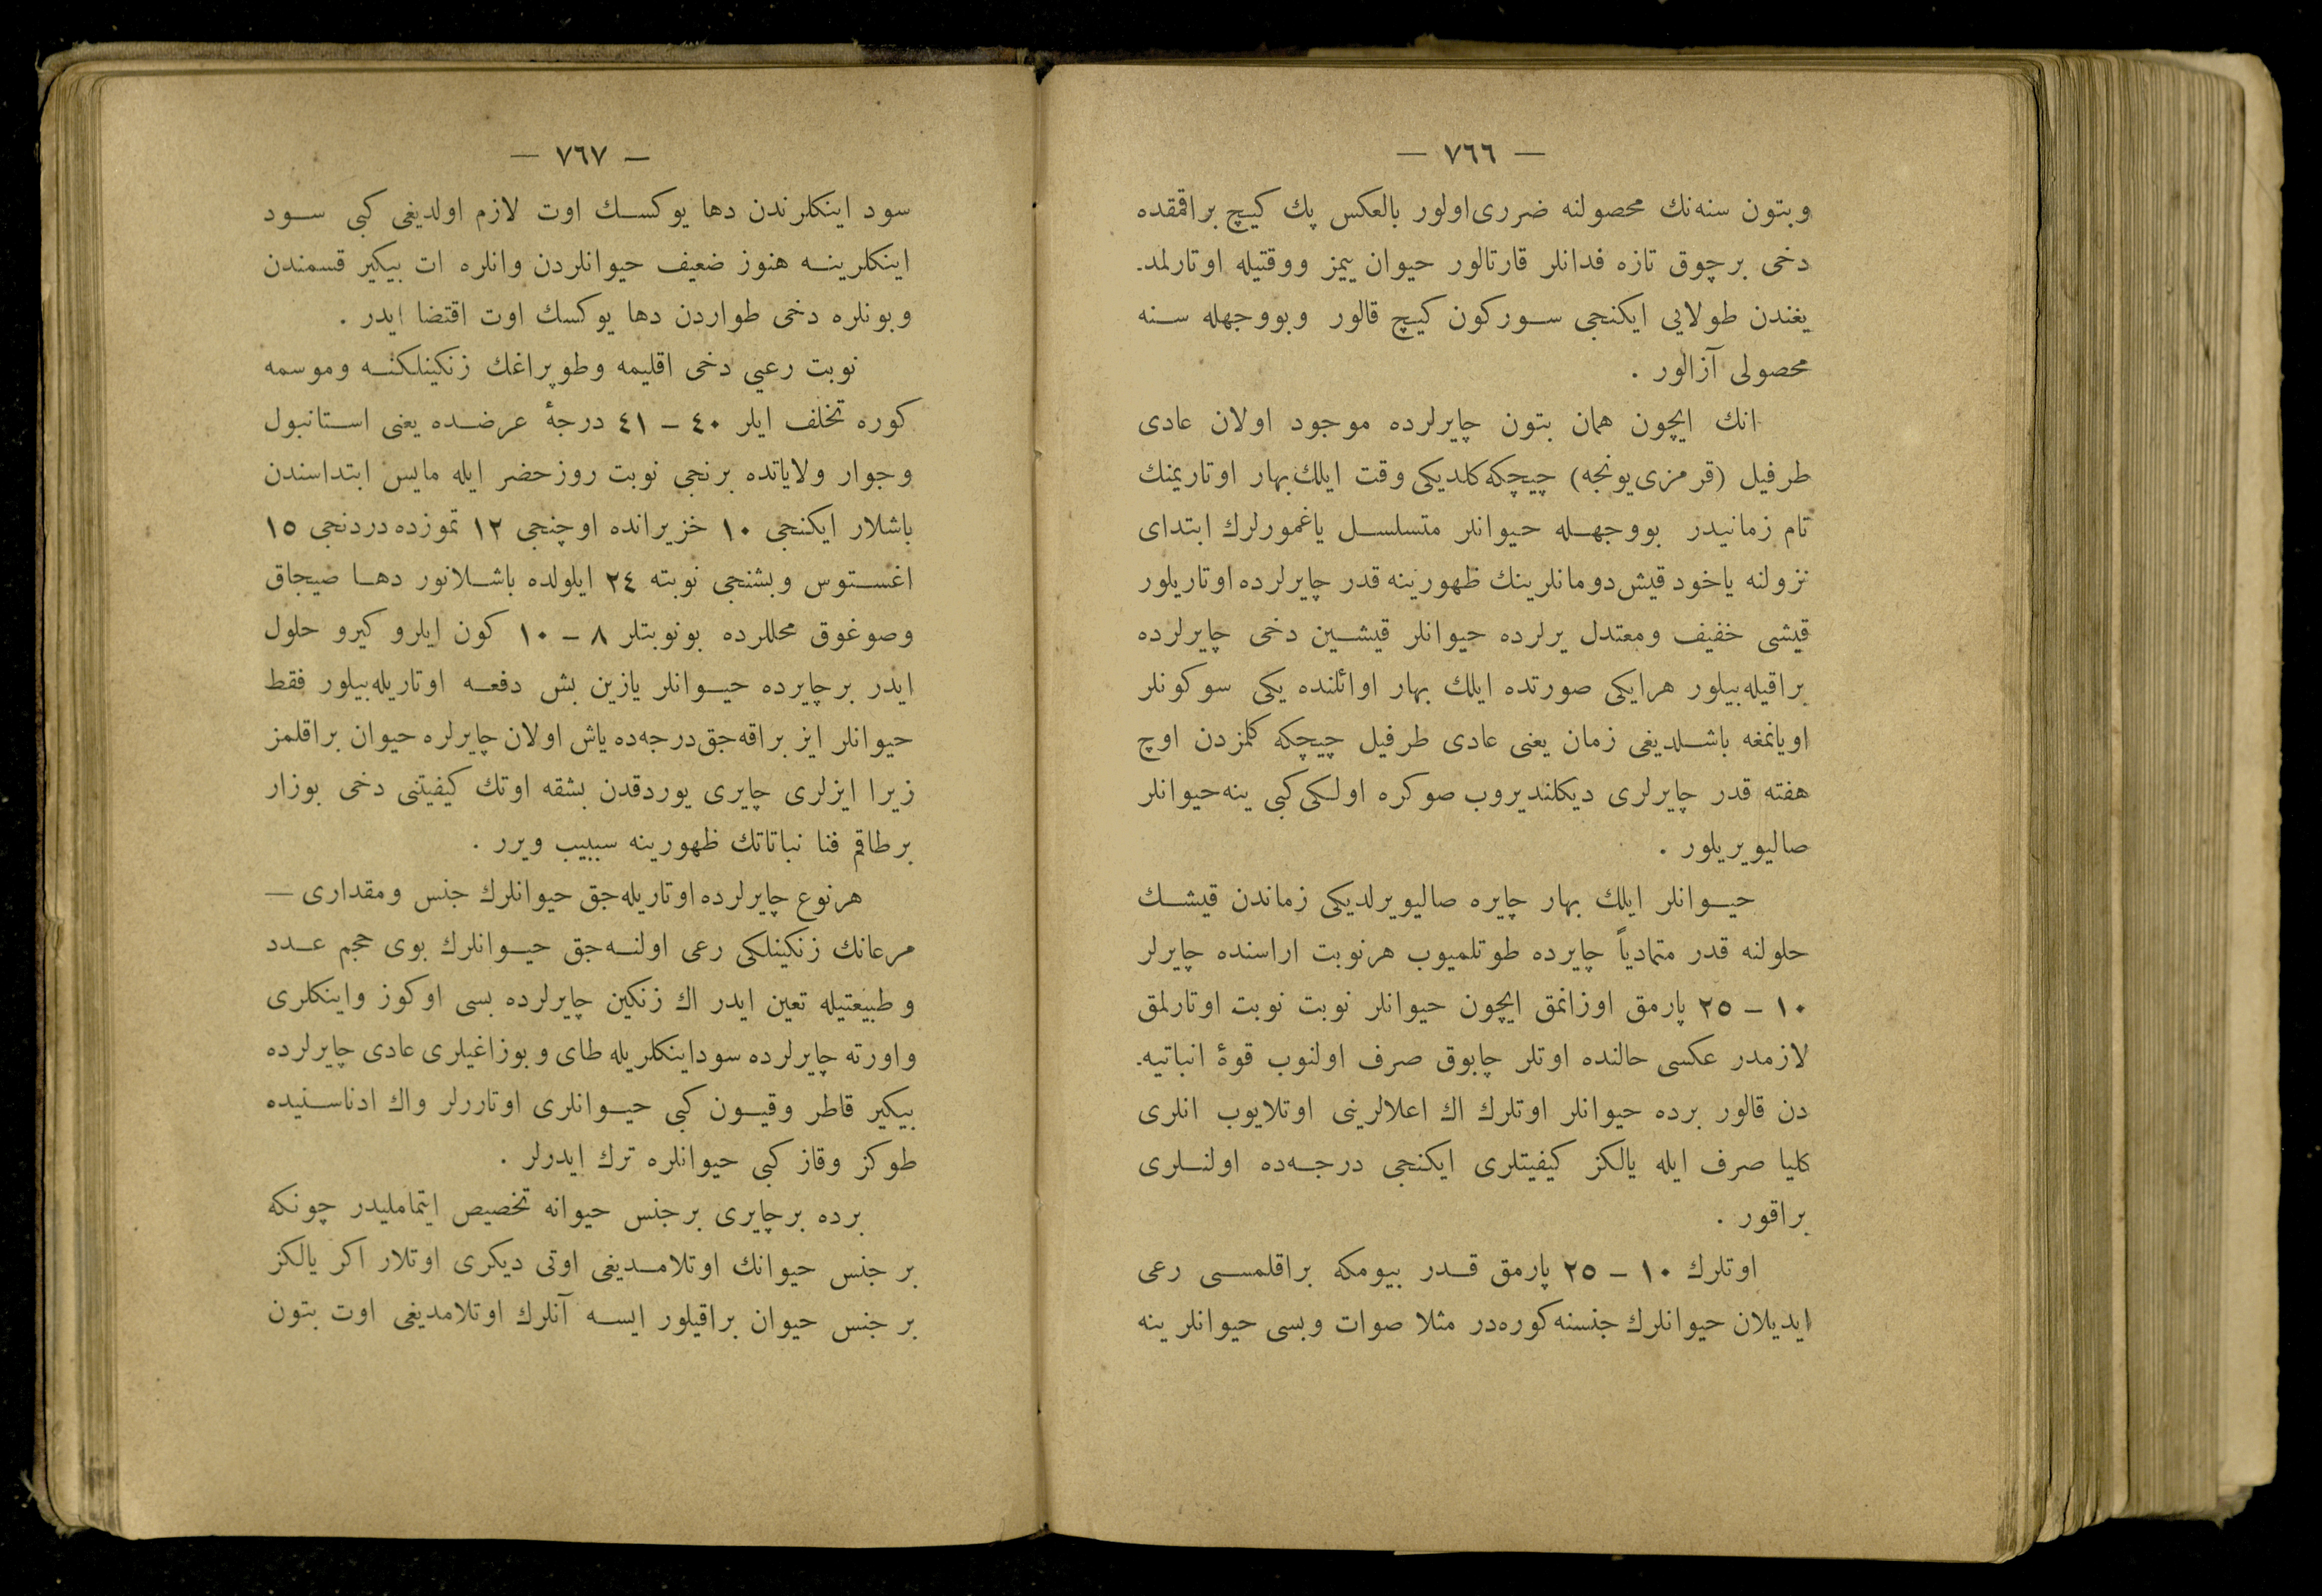 — ٧٦٦ —
وبتون سنه‌نك محصولنه ضررى اولور بالعكس پك كيچ براقمقده
دخى برچوق تازه فدانلر قارتالور حيوان ييمز ووقتيله اوتارلمد.
يغندن طولايى ايكنجى سوركون كيچ قالور وبووجهله سنه
محصولى آزالور .
انك ايچون همان بتون چايرلرده موجود اولان عادى
طرفيل (قرمزى يونجه) چيچكه كلديكى وقت ايلك بهار اوتاريمنك
تام زمانيدر بووجهله حيوانلر متسلسل ياغمورلرك ابتداى
نزولنه ياخود قيش دومانلرينك ظهورينه قدر چايرلرده اوتاريلور
قيشى خفيف ومعتدل يرلرده حيوانلر قيشين دخى چايرلرده
براقيله‌بيلور هرايكى صورتده ايلك بهار اوائلنده يكى سوكونلر
اويانمغه باشلديغى زمان يعنى عادى طرفيل چيچكه كلمزدن اوچ
هفته قدر چايرلرى ديكلنديروب صوكره اولكى كبى ينه حيوانلر
صاليويريلور .
حيوانلر ايلك بهار چايره صاليويرلديكى زماندن قيشك
حلولنه قدر متمادياً چايرده طوتلميوب هرنوبت اراسنده چايرلر
١٠ – ٢٥ پارمق اوزانمق ايچون حيوانلر نوبت نوبت اوتارلمق
لازمدر عكسى حالنده اوتلر چابوق صرف اولنوب قوۀ انباتيه.
دن قالور برده حيوانلر اوتلرك اك اعلالرينى اوتلايوب انلرى
كليا صرف ايله يالكز كيفيتلرى ايكنجى درجه‌ده اولنلرى
براقور .
اوتلرك ١٠ – ٢٥ پارمق قدر بيومكه براقلمسى رعى
ايديلان حيوانلرك جنسنه كوره‌در مثلا صوات وبسى حيوانلرينه
— ٧٦٧ —
سود اينكلرندن دها يوكسك اوت لازم اولديغى كبى سود
اينكلرينه هنوز ضعيف حيوانلردن وانلره ات بيكير قسمندن
وبونلره دخى طواردن دها يوكسك اوت اقتضا ايدر .
نوبت رعيي دخى اقليمه وطوپراغك زنكينلكنه وموسمه
كوره تخلف ايلر ٤٠ – ٤١ درجۀ عرضده يعنى استانبول
وجوار ولاياتده برنجى نوبت روزحضر ايله مايس ابتداسندن
باشلار ايكنجى ١٠ خزيرانده اوچنجى ١٢ تموزده دردنجى ١٥
اغستوس وبشنجى نوبته ٢٤ ايلولده باشلانور دها صيجاق
وصوغوق محللرده بونوبتلر ٨ – ١٠ كون ايلرو كيرو حلول
ايدر برچايرده حيوانلر يازين بش دفعه اوتاريله‌بيلور فقط
حيوانلر ايز براقه‌جق درجه‌ده ياش اولان چايرلره حيوان براقلمز
زيرا ايزلرى چايرى يوردقدن بشقه اوتك كيفيتنى دخى بوزار
برطاقم فنا نباتاتك ظهورينه سببيب ويرر .
هرنوع چايرلرده اوتاريله‌جق حيوانلرك جنس ومقدارى —
مرعانك زنكينلكى رعى اولنه‌جق حيوانلرك بوى حجم عدد
وطبيعتيله تعين ايدر اك زنكين چايرلرده بسى اوكوز واينكلرى
واورته چايرلرده سوداينكلريله طاى وبوزاغيلرى عادى چايرلرده
بيكير قاطر وقيون كبى حيوانلرى اوتاررلر واك ادناسنيده
طوكز وقاز كبى حيوانلره ترك ايدرلر .
برده برچايرى برجنس حيوانه تخصيص ايتمامليدر چونكه
بر جنس حيوانك اوتلامديغى اوتى ديكرى اوتلار اكر يالكز
بر جنس حيوان براقيلور ايسه آنلرك اوتلامديغى اوت بتون